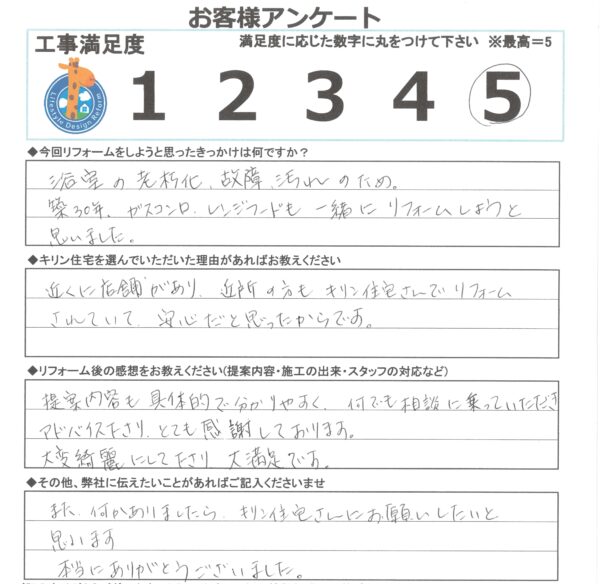 お客様アンケート
工事満足度　満足度に応じた数字に丸をつけて下さい　※最高＝5
Lifestyle Design Reform
1 2 3 4 5
◆今回リフォームをしようと思ったきっかけは何ですか？
浴室の老朽化、故障、汚れのため。
築30年、ガスコンロ、レンジフードも一緒にリフォームしようと
思いました。
◆キリン住宅を選んでいただいた理由があればお教えください
近くに店舗があり、近所の方もキリン住宅さんでリフォーム
されていて、安心だと思ったからです。
◆リフォーム後の感想をお教えください(提案内容・施工の出来・スタッフの対応など)
提案内容も具体的で分かりやすく、何でも相談に乗っていただき
アドバイス下さり、とても感謝しております。
大変綺麗にして下さり大満足です。
◆その他、弊社に伝えたいことがあればご記入くださいませ
また、何かありましたら、キリン住宅さんにお願いしたいと
思います
本当にありがとうございました。